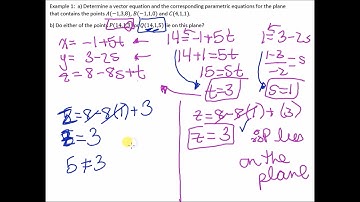 Example 1: a) Determine a vector equation and the corresponding parametric equations for the plane
that contains the points A(-1,3,8), B(-1,1,0) and C(4,1,1).
b) Do either of the points P(14,1,3) or Q(14,1,5) lie on this plane?
x = -1+5t
y = 3-2s
z = 8-8s+t
14 = -1+5t
14+1 = 5t
15 = 5t
t = 3
1 = 3-2s
1-3 = s
-2
s = 1
5 = 8-8(1)+3
5 = 3
5 ≠ 3
z = 8-8(1)+(3)
z = 3 ✓
∴ P lies
on the
plane